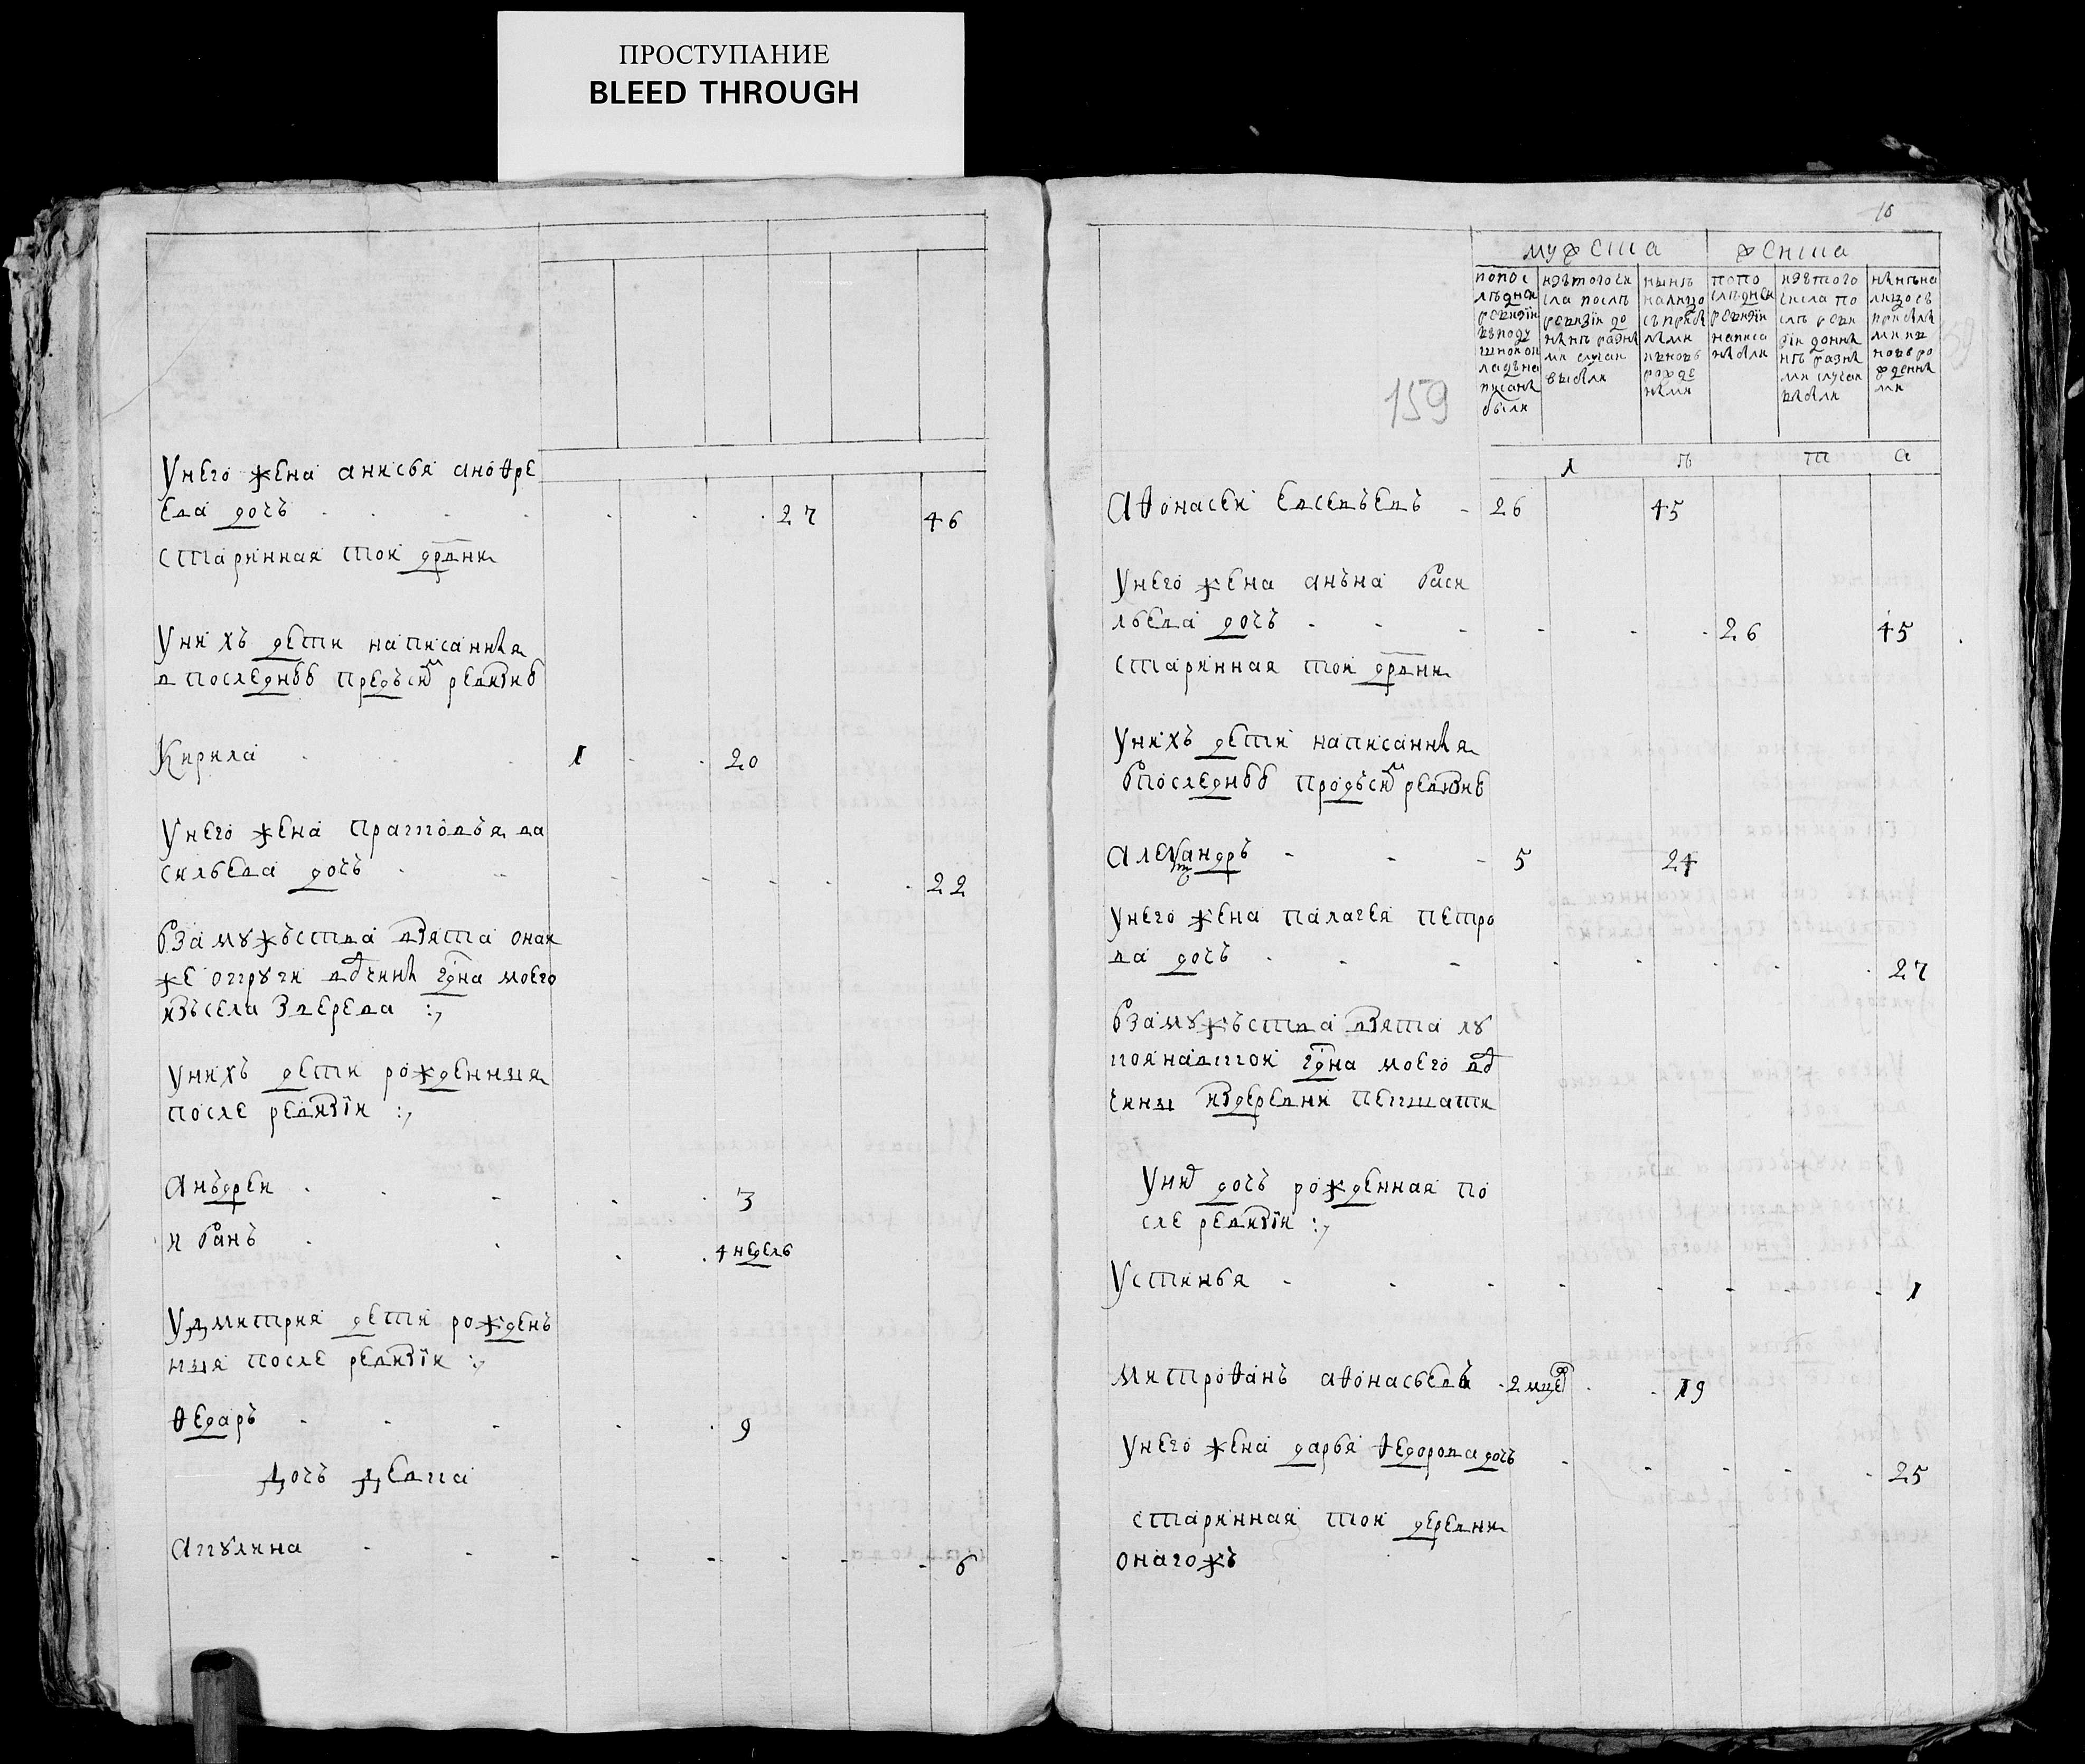 ПРОСТУПАНИЕ
BLEED THROUGH
Унего жена анисья андре
ева дочь 27 46
старинная той дрвни
Унихъ дети написанныя
в последнѣй предъсй ревизиѣ
Кирила 1 20
Унего жена прасковья ва
сильева дочь 22
Взамужъства взята онаи
же округи вотчины гдна моего
изъсела
Унихъ дети рожденныя
после ревизiи :,
Анъдреи 3
иванъ 4 недель
Удмитрия дети рождень
ныя после ревизiи :,
Ѳедаръ 9
Дочь девка
Акулина 6
10
159
мужеска женска
попос
лѣдней
ревизiи
вподу
шномок
ладъна
писаны
были
изътогочи
сла послѣ
ревизiи до
нынѣ разны
ми случаи
выбыли
нынѣ
налицо
съприбы
лыми
иновь
рожде
ными
попо
слѣдней
ревизiи
написа
ны были
изътого
числа по
слѣ реви
зiи доны
нѣ разны
ми случаи
выбыли
нынѣна
лицо съ
прибылы
ми ии
новь ро
жденны
ми
Аѳонасеи Евсевъевъ 26 45
Унего жена анъна васи
льева дочь 26 45
старинная той дрвни
Унихъ дети написанныя
впоследнѣй предъсй ревизиѣ
Александръ 5 24
Унего жена палагея петро
ва дочь 27
Взамужъства взята лу
гдна моего вот
чины издеревни
Унй дочь рожденная по
сле ревизiи :,
Устинья 1
митрофанъ аѳонасьевъ 2 мцей 19
Унего жена дарья Ѳедорова дочь 25
старинная той деревни
онагожъ